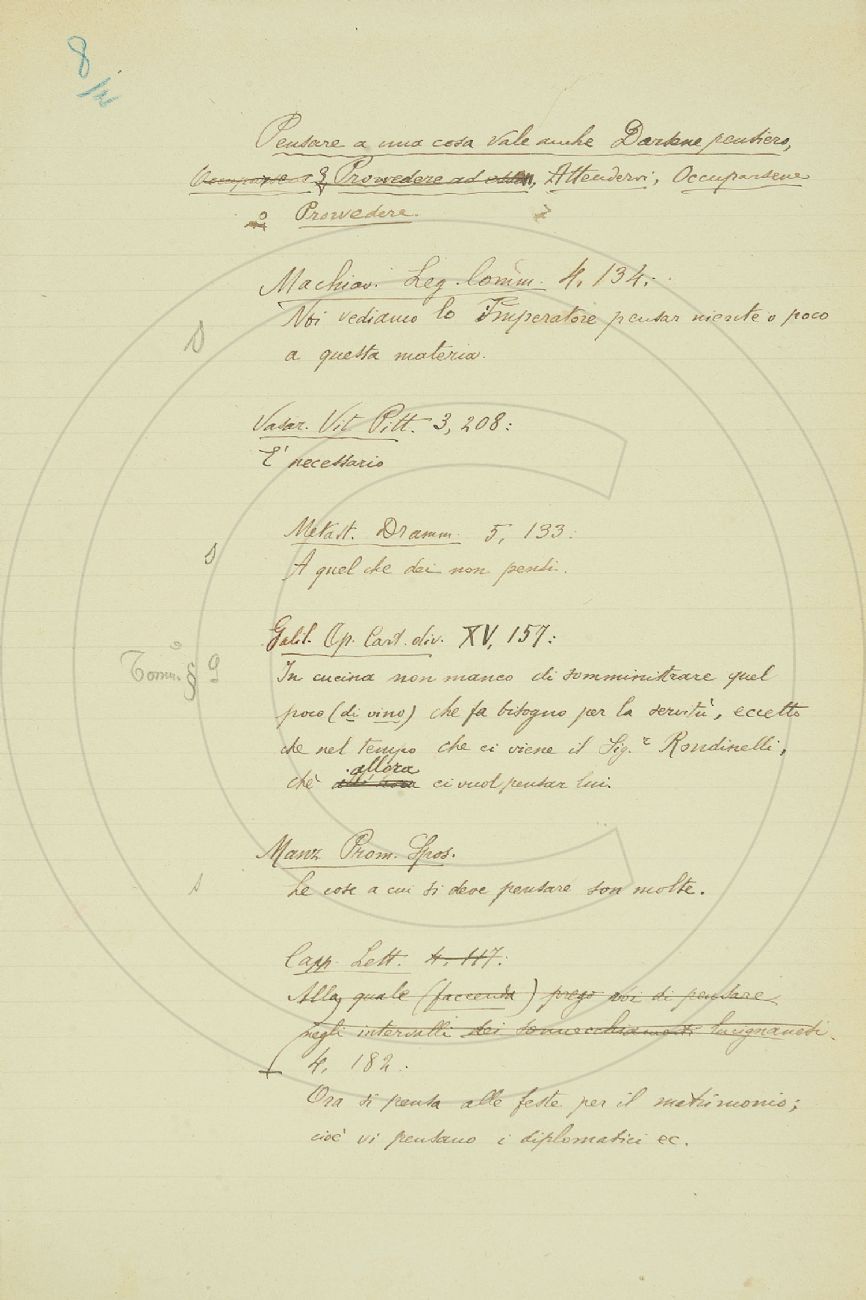 8
Pensare a una cosa vale anche Darsene pensiero,
Provedere ad, Attendervi, Occuparsene
o Provvedere.
Machiav. Leg. Comm. 4, 134:
Noi vediamo lo Imperatore pensar niente o poco
a questa materia.
Vasar. Vit. Pitt. 3, 208:
E' necessario
Metast. Dramm. 5, 133:
A quel che dei non pensi.
Galil. Op. Cart. div. XV, 157:
Tomm. § 9
In cucina non manco di somministrare quel
poco (di vino) che fa bisogno per la servitù, eccetto
che nel tempo che ci viene il Sig.r Rondinelli,
chè allora ci vuol pensar lui.
Manz. Prom. Spos.
Le cose a cui si deve pensare son molte.
Capp. Lett. 4. 117:
Alla quale (faccenda) prego voi di pensare,
negli intervalli dei sonnecchiamenti lucignanesi.
4, 182:
Ora si pensa alle feste per il matrimonio;
cioè vi pensano i diplomatici ec.